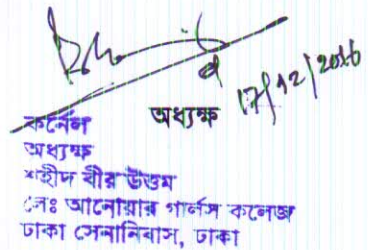 অধ্যক্ষ 17/12/2016
কর্নেল
অধ্যক্ষ
শহীদ বীর উত্তম
লেঃ আনোয়ার গার্লস কলেজ
ঢাকা সেনানিবাস, ঢাকা